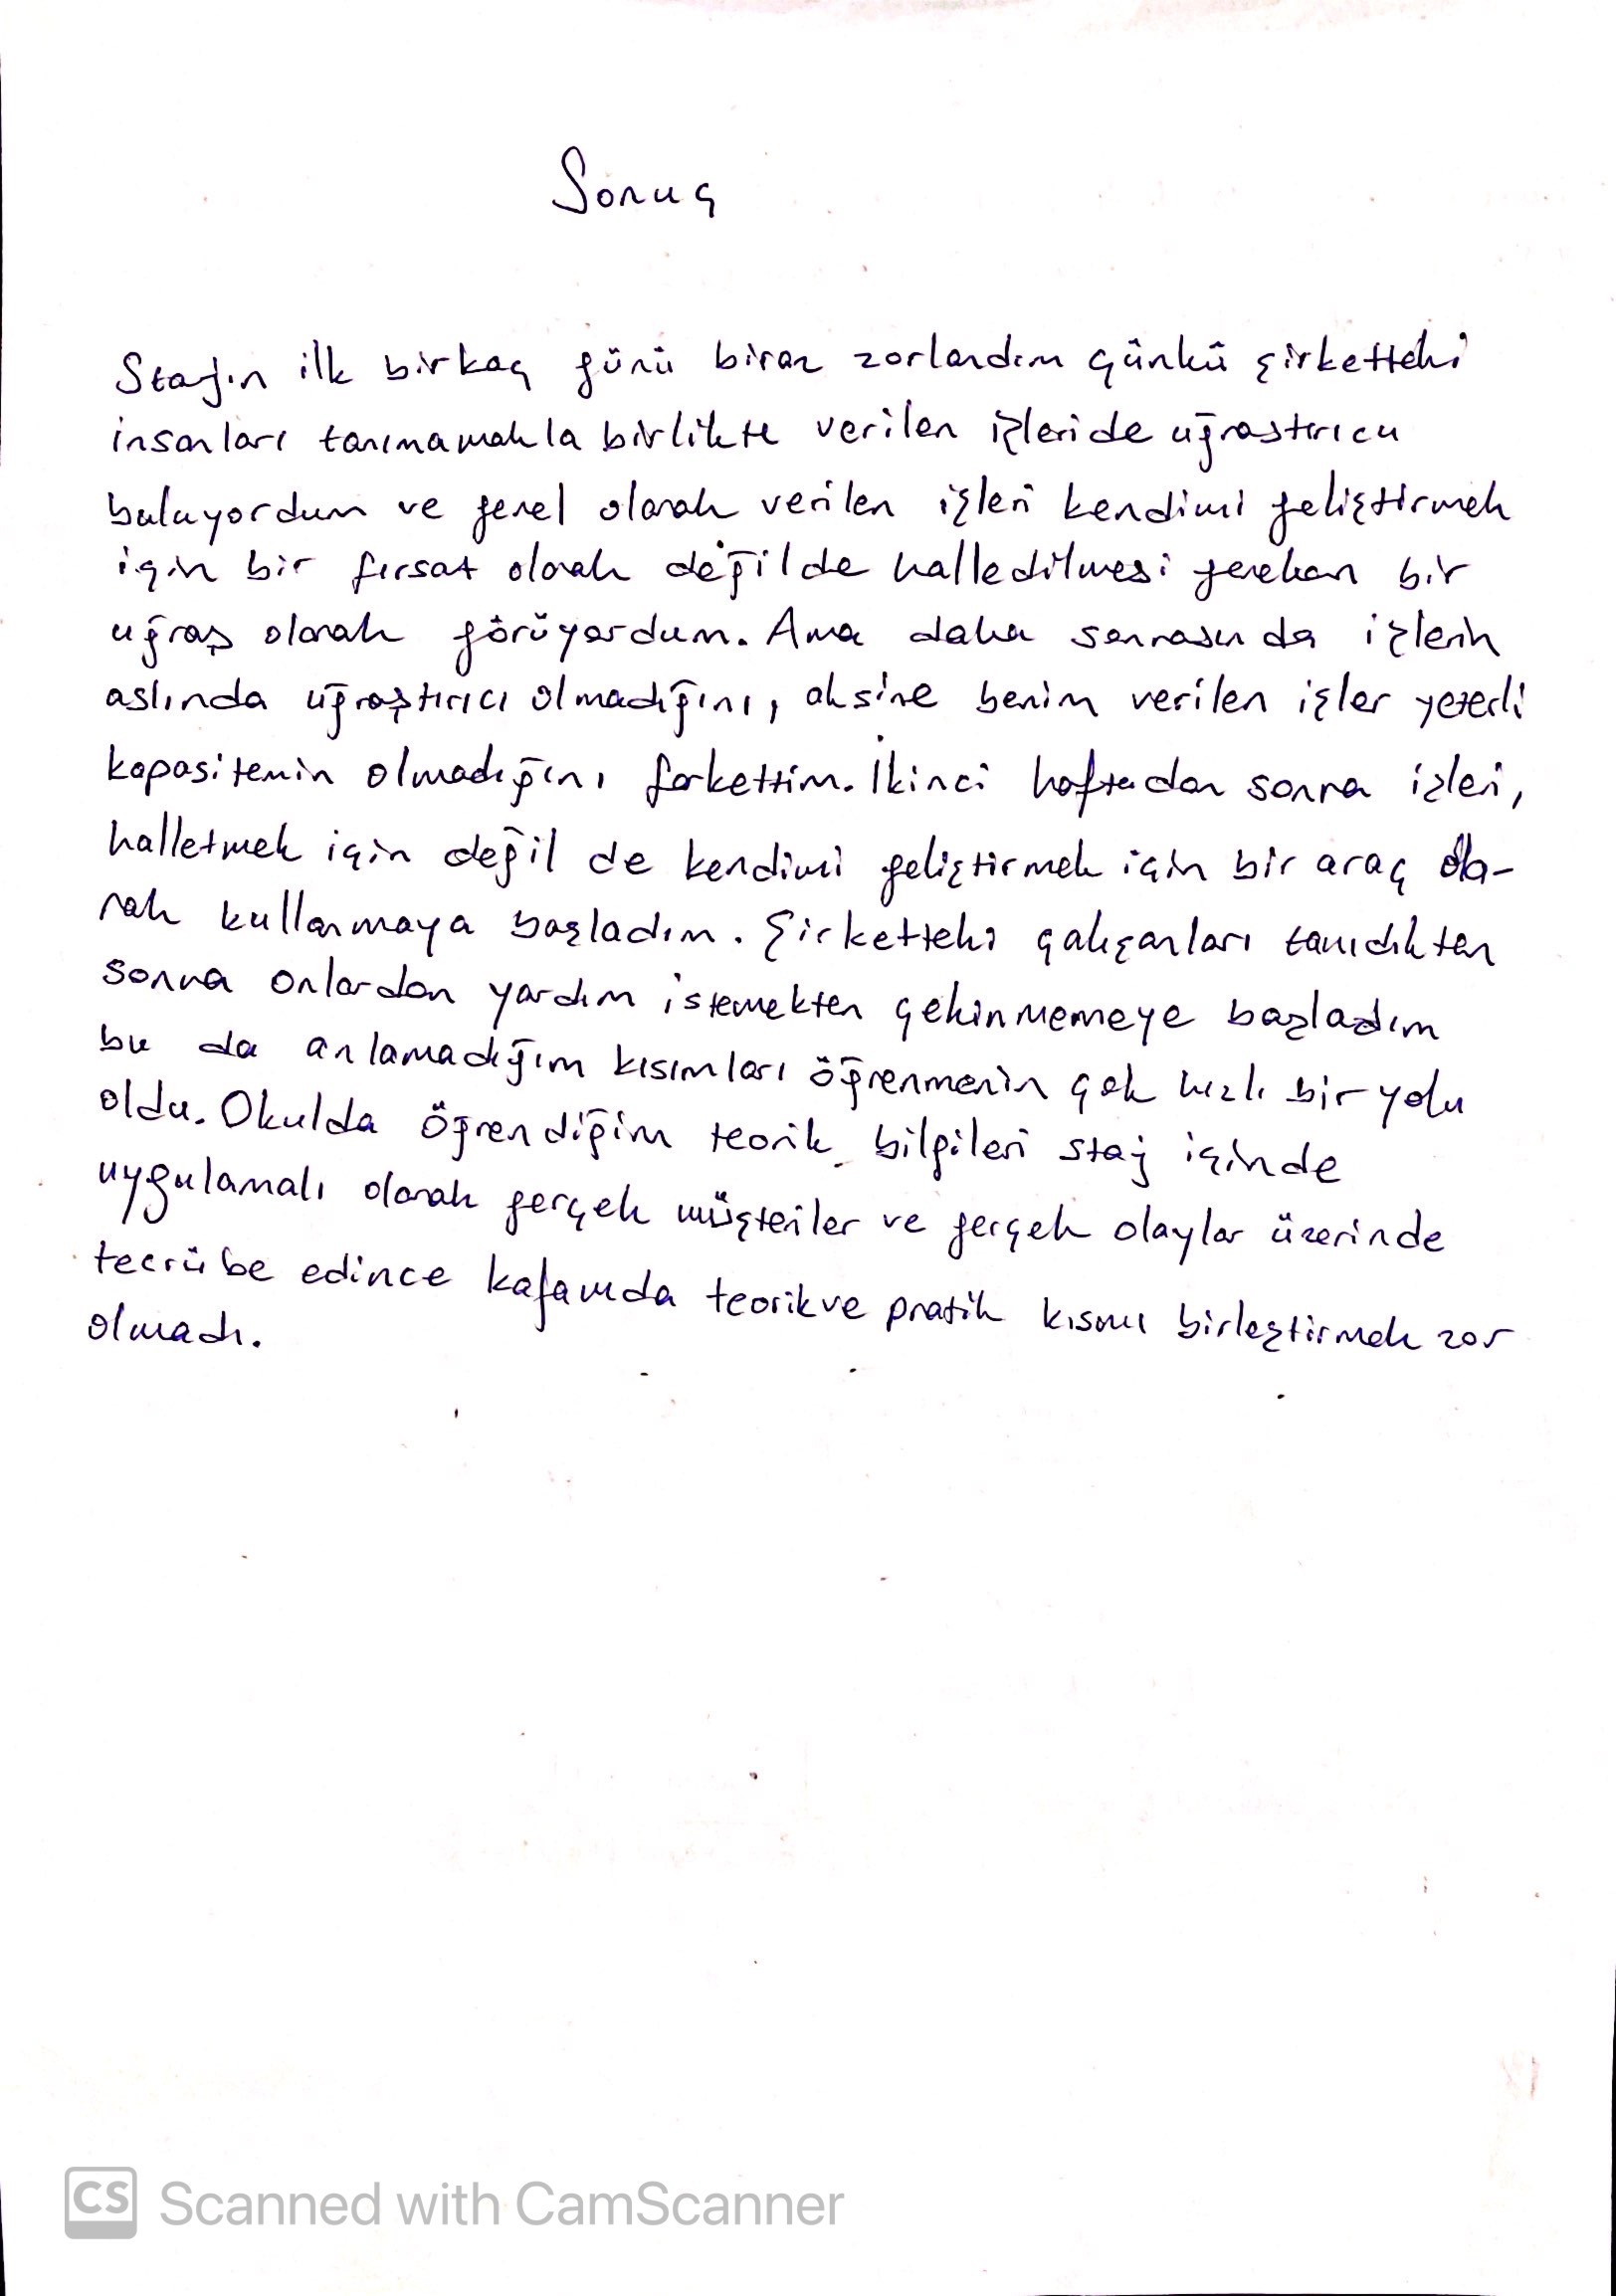 Sonuç
Stajın ilk birkaç günü biraz zorlandım çünkü şirketteki
insanları tanımamakla birlikte verilen işleride uğrastırıcı
buluyordum ve genel olarak verilen işleri kendimi geliştirmek
için bir fırsat olarak değilde halledilmesi gereken bir
uğraş olarak görüyordum. Ama daha sonrasında işlerin
aslında uğraştırıcı olmadığını, aksine benim verilen işler yeterli
kapasitemin olmadığını farkettim. İkinci haftadan sonra işleri,
halletmek için değil de kendimi geliştirmek için bir araç ola-
rak kullanmaya başladım. Şirketteki çalışanları tanıdıkten
sonra onlardan yardım istemekten çekinmemeye başladım
bu da anlamadığım kısımları öğrenmenin çok hızlı bir yolu
oldu. Okulda öğrendiğim teorik bilgileri staj içinde
uygulamalı olarak gerçek müşteriler ve gerçek olaylar üzerinde
tecrübe edince kafamda teorik ve pratik kısmı birleştirmek zor
olmadı.
CS Scanned with CamScanner